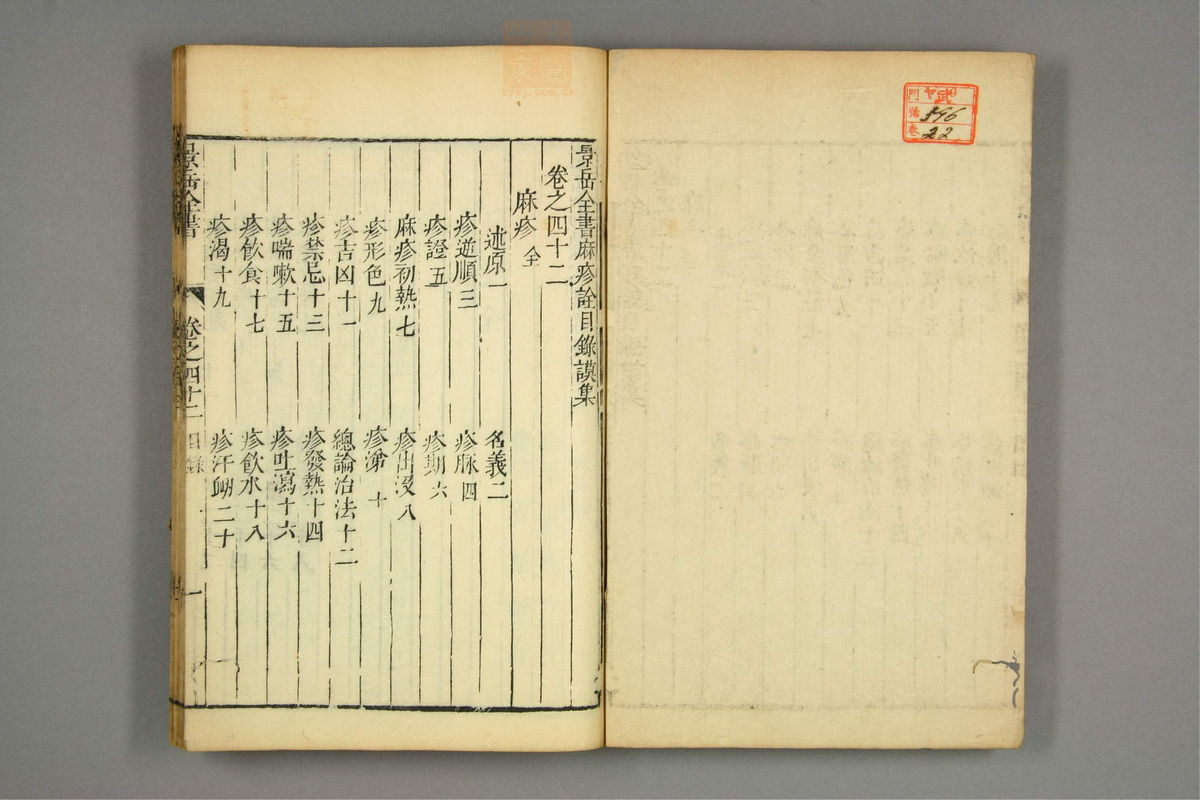 景岳全書麻疹詮目錄謨集
卷之四十二
麻疹 全
述原一
名義二
疹逆順三
疹脉四
疹證五
疹期六
麻疹初熱七
疹出沒八
疹形色九
疹涕十
疹吉凶十一
總論治法十二
疹禁忌十三
疹發熱十四
疹喘嗽十五
疹吐瀉十六
疹飲食十七
疹飲水十八
疹渴十九
疹汗衄二十
景岳全書
卷之四十二
目錄
一
門
武
號
396
卷
22
zysj.com.cn